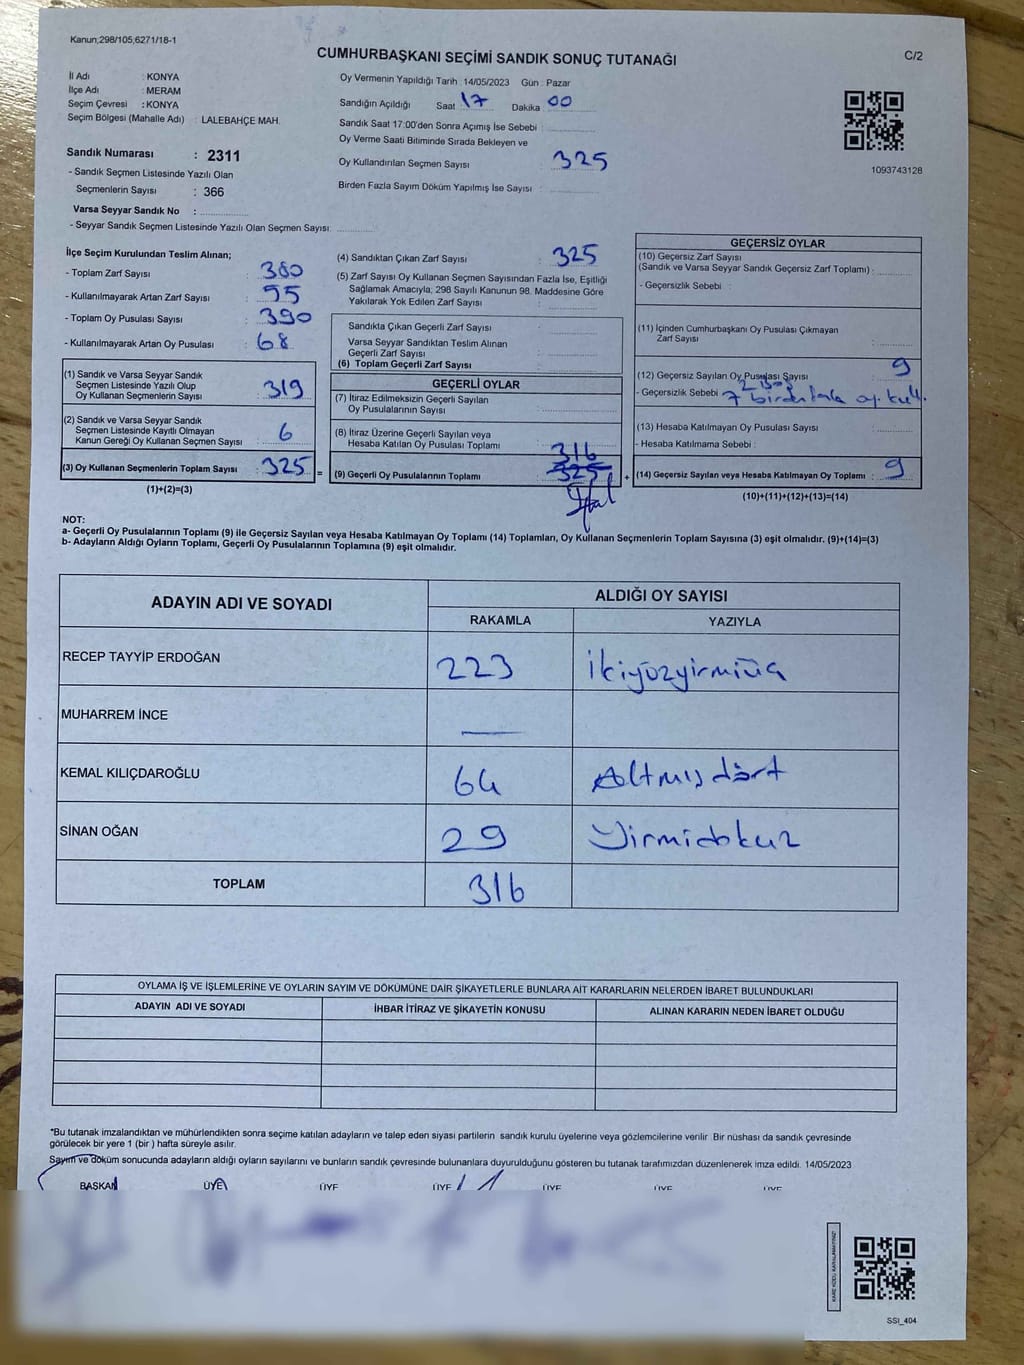 Kanun;298/105,6271/18-1
CUMHURBAŞKANI SEÇİMİ SANDIK SONUÇ TUTANAĞI
C/2
İl Adı : KONYA
İlçe Adı : MERAM
Seçim Çevresi : KONYA
Seçim Bölgesi (Mahalle Adı) : LALEBAHÇE MAH.
Sandık Numarası : 2311
- Sandık Seçmen Listesinde Yazılı Olan
Seçmenlerin Sayısı : 366
Varsa Seyyar Sandık No :
- Seyyar Sandık Seçmen Listesinde Yazılı Olan Seçmen Sayısı:
Oy Vermenin Yapıldığı Tarih 14/05/2023 Gün : Pazar
Sandığın Açıldığı Saat 17 Dakika 00
Sandık Saat 17:00'den Sonra Açımış İse Sebebi :
Oy Verme Saati Bitiminde Sırada Bekleyen ve
Oy Kullandırılan Seçmen Sayısı : 325
Birden Fazla Sayım Döküm Yapılmış İse Sayısı :
1093743128
İlçe Seçim Kurulundan Teslim Alınan;
- Toplam Zarf Sayısı : 380
- Kullanılmayarak Artan Zarf Sayısı : 55
- Toplam Oy Pusulası Sayısı : 390
- Kullanılmayarak Artan Oy Pusulası : 68
(1) Sandık ve Varsa Seyyar Sandık
Seçmen Listesinde Yazılı Olup
Oy Kullanan Seçmenlerin Sayısı : 319
(2) Sandık ve Varsa Seyyar Sandık
Seçmen Listesinde Kayıtlı Olmayan
Kanun Gereği Oy Kullanan Seçmen Sayısı : 6
(3) Oy Kullanan Seçmenlerin Toplam Sayısı : 325 =
(1)+(2)=(3)
(4) Sandıktan Çıkan Zarf Sayısı : 325
(5) Zarf Sayısı Oy Kullanan Seçmen Sayısından Fazla İse, Eşitliği
Sağlamak Amacıyla; 298 Sayılı Kanunun 98. Maddesine Göre
Yakılarak Yok Edilen Zarf Sayısı :
Sandıkta Çıkan Geçerli Zarf Sayısı :
Varsa Seyyar Sandıktan Teslim Alınan
Geçerli Zarf Sayısı :
(6) Toplam Geçerli Zarf Sayısı :
GEÇERLİ OYLAR
(7) İtiraz Edilmeksizin Geçerli Sayılan
Oy Pusulalarının Sayısı :
(8) İtiraz Üzerine Geçerli Sayılan veya
Hesaba Katılan Oy Pusulası Toplamı :
316
(9) Geçerli Oy Pusulalarının Toplamı : 325 +
GEÇERSİZ OYLAR
(10) Geçersiz Zarf Sayısı
(Sandık ve Varsa Seyyar Sandık Geçersiz Zarf Toplamı) :
- Geçersizlik Sebebi :
(11) İçinden Cumhurbaşkanı Oy Pusulası Çıkmayan
Zarf Sayısı :
(12) Geçersiz Sayılan Oy Pusulası Sayısı : 9
2 boş
- Geçersizlik Sebebi : 7 birden fazla oy. kull.
(13) Hesaba Katılmayan Oy Pusulası Sayısı :
- Hesaba Katılmama Sebebi :
(14) Geçersiz Sayılan veya Hesaba Katılmayan Oy Toplamı : 9
(10)+(11)+(12)+(13)=(14)
NOT:
a- Geçerli Oy Pusulalarının Toplamı (9) ile Geçersiz Sayılan veya Hesaba Katılmayan Oy Toplamı (14) Toplamları, Oy Kullanan Seçmenlerin Toplam Sayısına (3) eşit olmalıdır. (9)+(14)=(3)
b- Adayların Aldığı Oyların Toplamı, Geçerli Oy Pusulalarının Toplamına (9) eşit olmalıdır.
ADAYIN ADI VE SOYADI
ALDIĞI OY SAYISI
RAKAMLA YAZIYLA
RECEP TAYYİP ERDOĞAN 223 İkiyüzyirmiüç
MUHARREM İNCE —
KEMAL KILIÇDAROĞLU 64 Altmışdört
SİNAN OĞAN 29 Yirmidokuz
TOPLAM 316
OYLAMA İŞ VE İŞLEMLERİNE VE OYLARIN SAYIM VE DÖKÜMÜNE DAİR ŞİKAYETLERLE BUNLARA AİT KARARLARIN NELERDEN İBARET BULUNDUKLARI
ADAYIN ADI VE SOYADI İHBAR İTİRAZ VE ŞİKAYETİN KONUSU ALINAN KARARIN NEDEN İBARET OLDUĞU
*Bu tutanak imzalandıktan ve mühürlendikten sonra seçime katılan adayların ve talep eden siyasi partilerin sandık kurulu üyelerine veya gözlemcilerine verilir. Bir nüshası da sandık çevresinde
görülecek bir yere 1 (bir ) hafta süreyle asılır.
Sayım ve döküm sonucunda adayların aldığı oyların sayılarını ve bunların sandık çevresinde bulunanlara duyurulduğunu gösteren bu tutanak tarafımızdan düzenlenerek imza edildi. 14/05/2023
BAŞKAN ÜYE ÜYE ÜYE ÜYE ÜYE ÜYE
SSI_404